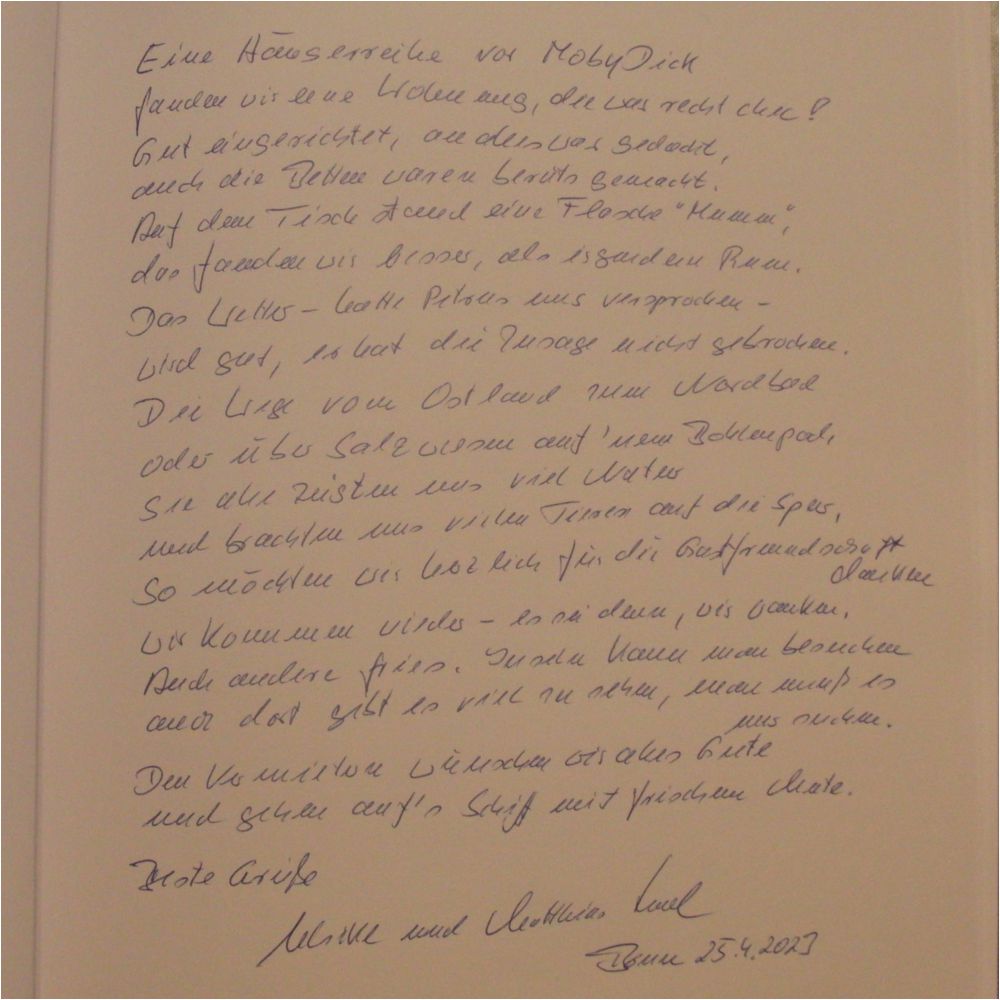 Eine Häuserreihe vor MobyDick
fanden wir eine Wohnung, die war recht chic!
Gut eingerichtet, an alles war gedacht,
auch die Betten waren bereits gemacht.
Auf dem Tisch stand eine Flasche "Mumm",
das fanden wir besser, als irgendein Rum.
Das Wetter – hatte Petrus uns versprochen –
wird gut, er hat die Zusage nicht gebrochen.
Die Wege vom Ostland zum Nordbad
oder über Salzwiesen auf 'nem Bohlenpad,
sie alle zeigten uns viel Natur
und brachten uns vielen Tieren auf die Spur.
So möchten wir herzlich für die Gastfreundschaft
danken
wir kommen wieder – es sei denn, wir wanken.
Auch andere fries. Inseln kann man besuchen
auch dort gibt es viel zu sehen, man muß es
nur suchen.
Den Vermietern wünschen wir alles Gute
und gehen auf's Schiff mit frischem Mute.
Beste Grüße
Ulrike und Matthias
Bonn 25.4.2023